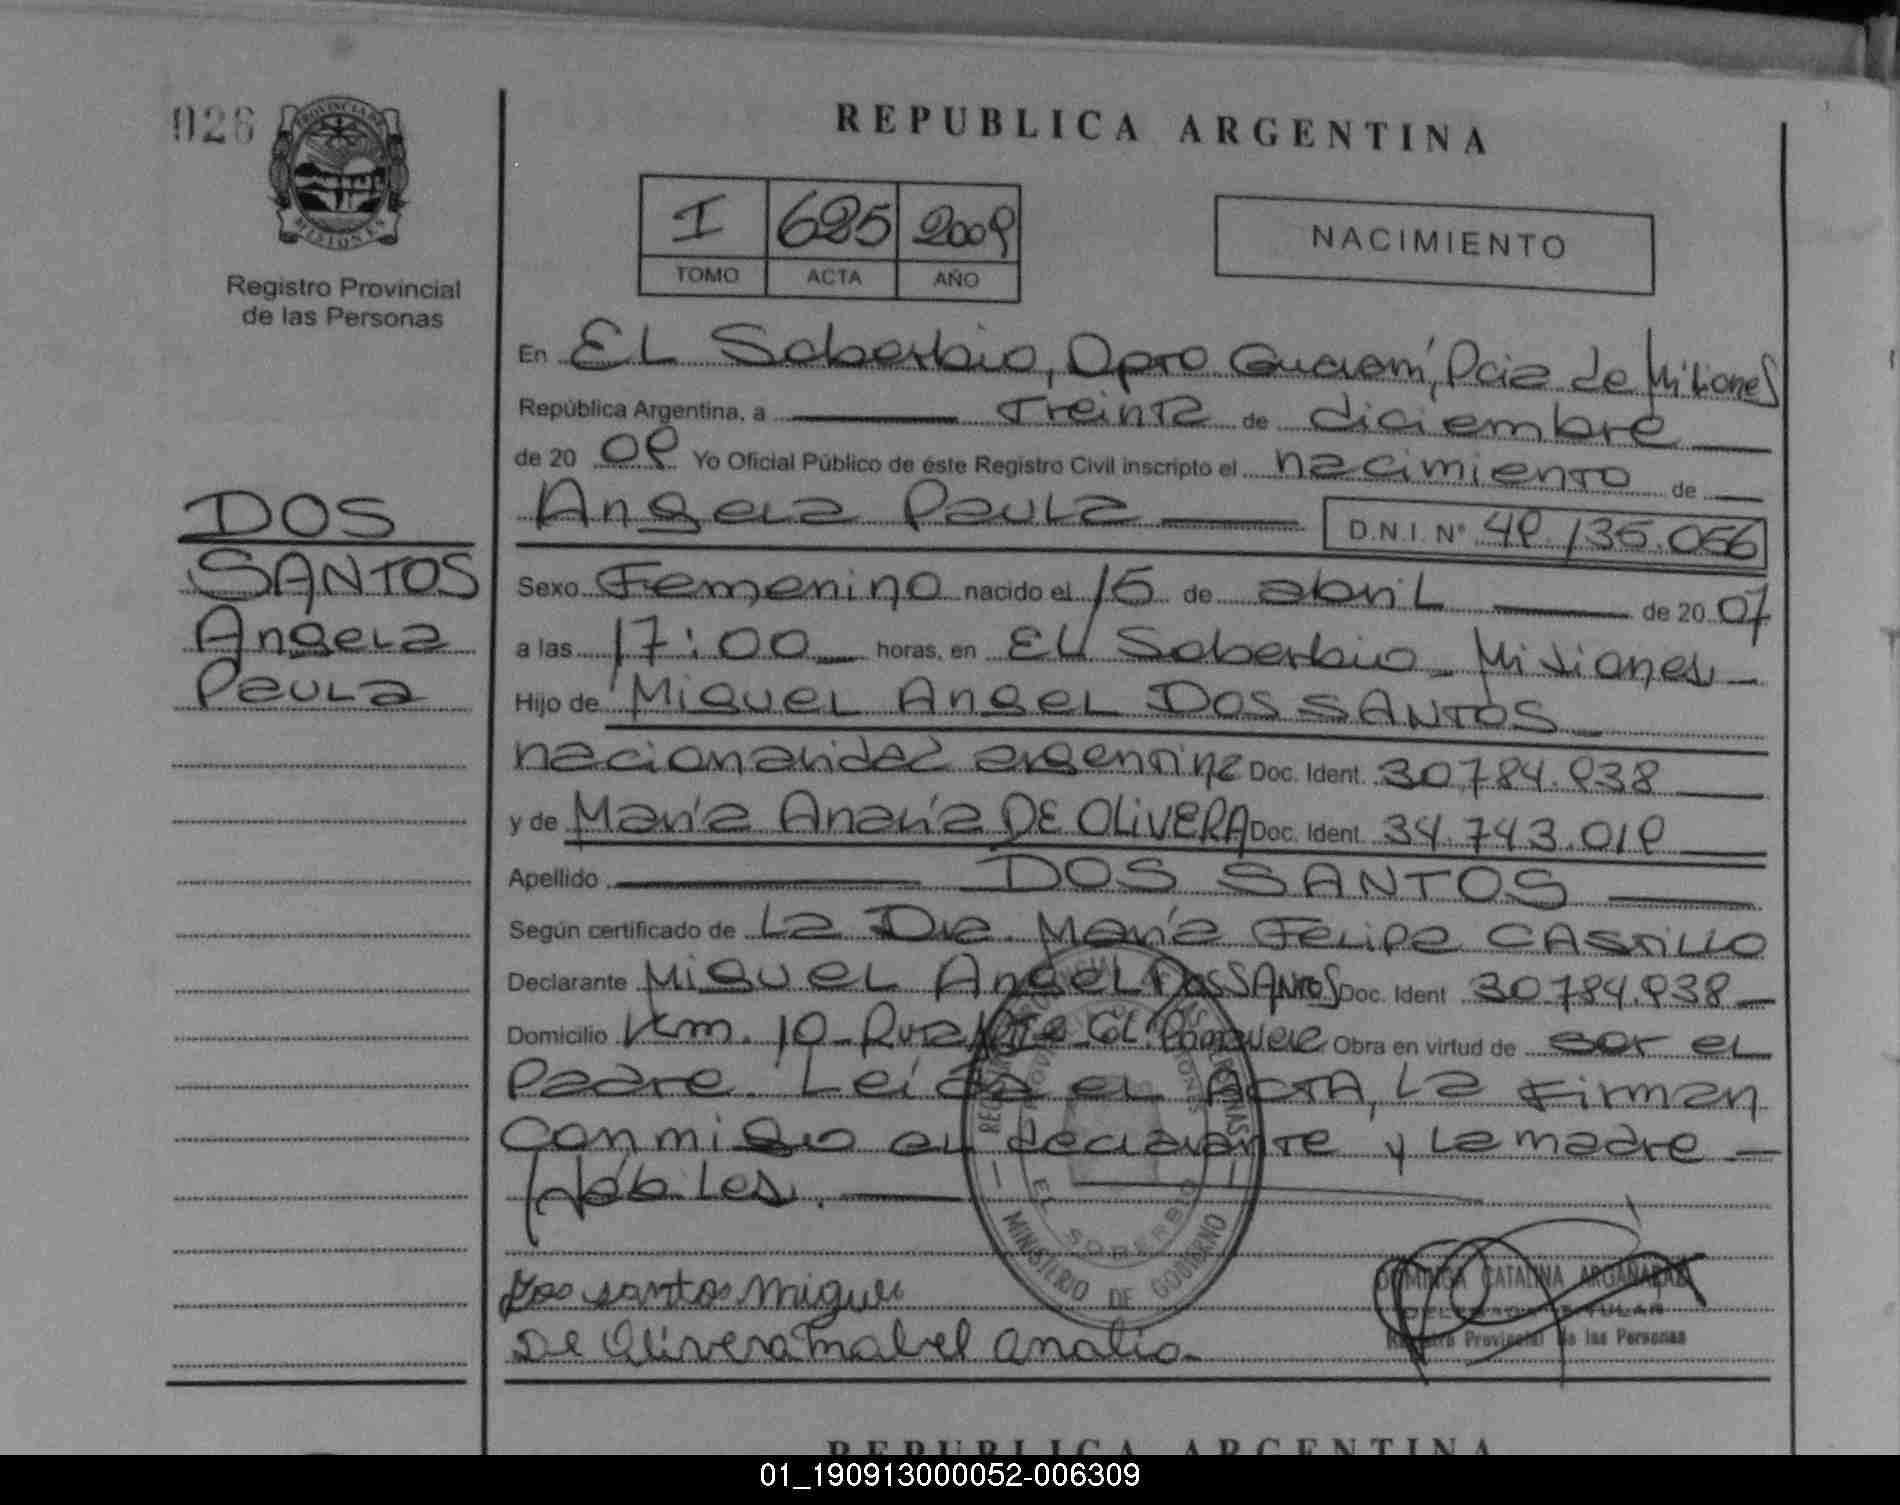 026
PROVINCIA DE
MISIONES
Registro Provincial
de las Personas
REPUBLICA ARGENTINA
I 625 2009
TOMO ACTA AÑO
NACIMIENTO
En EL Soberbio, Dpto Guaraní, Pcia de Misiones
República Argentina, a Treinta de diciembre
de 20 09 Yo Oficial Público de éste Registro Civil inscripto el nacimiento de
Angela Paula D.N.I. Nº 49.135.056
DOS
SANTOS
Angela
Paula
Sexo Femenino nacido el 15 de abril de 20 07
a las 17:00 horas, en EL Soberbio - Misiones -
Hijo de Miguel Angel DOS SANTOS
nacionalidad argentina Doc. Ident. 30.784.938
y de María Analía DE OLIVERA Doc. Ident. 34.743.019
Apellido DOS SANTOS
Según certificado de La Dra. María Felipa CASTILLO
Declarante Miguel Angel DOS SANTOS Doc. Ident 30.784.938
Domicilio Km. 10 - Ruta Col. Obra en virtud de ser el
Padre. Leída el ACTA, La Firman
conmigo el declarante y La madre
Hábiles.
MINISTERIO DE GOBIERNO
EL SOBERBIO
Dos santos Miguel
De Olivera Mabel Analia
DOMINGA CATALINA ARGAÑARAZ
DELEGADA TITULAR
Registro Provincial de las Personas
REPUBLICA ARGENTINA
01_190913000052-006309